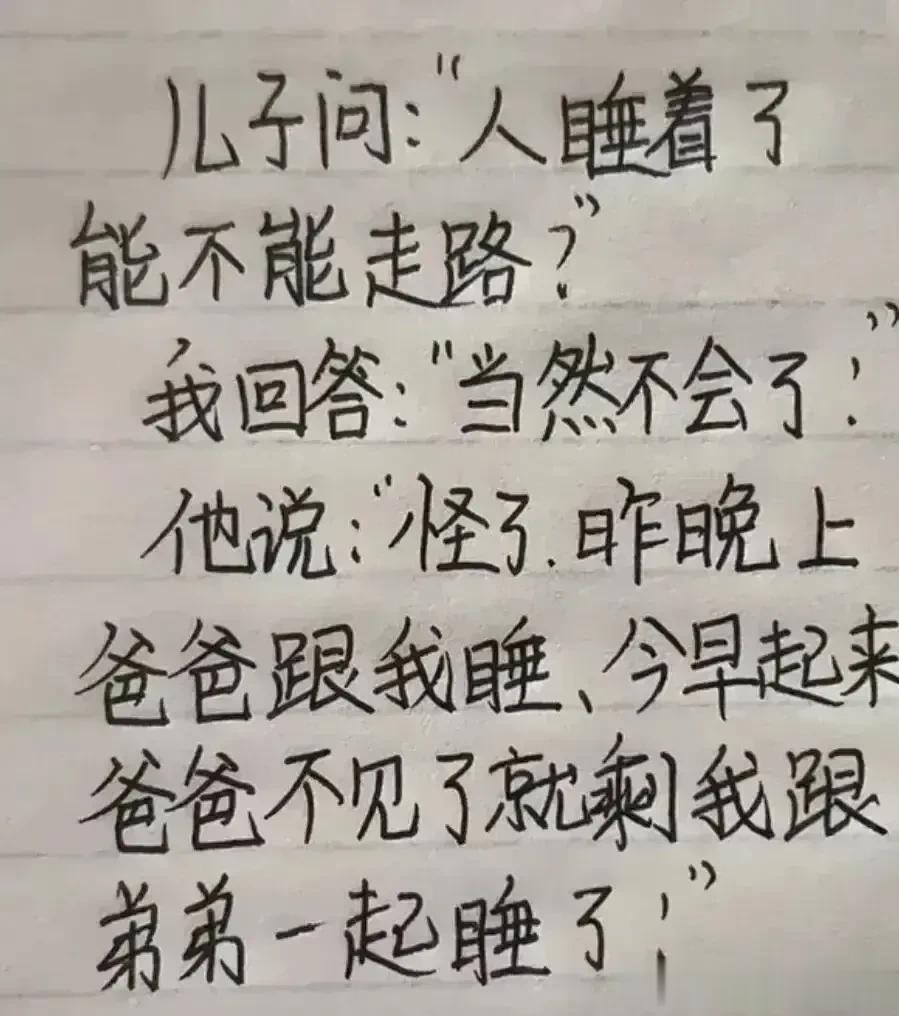 儿子问:“人睡着了
能不能走路?”
我回答:“当然不会了!”
他说:“怪了.昨晚上
爸爸跟我睡、今早起来
爸爸不见了就剩我跟
弟弟一起睡了!”